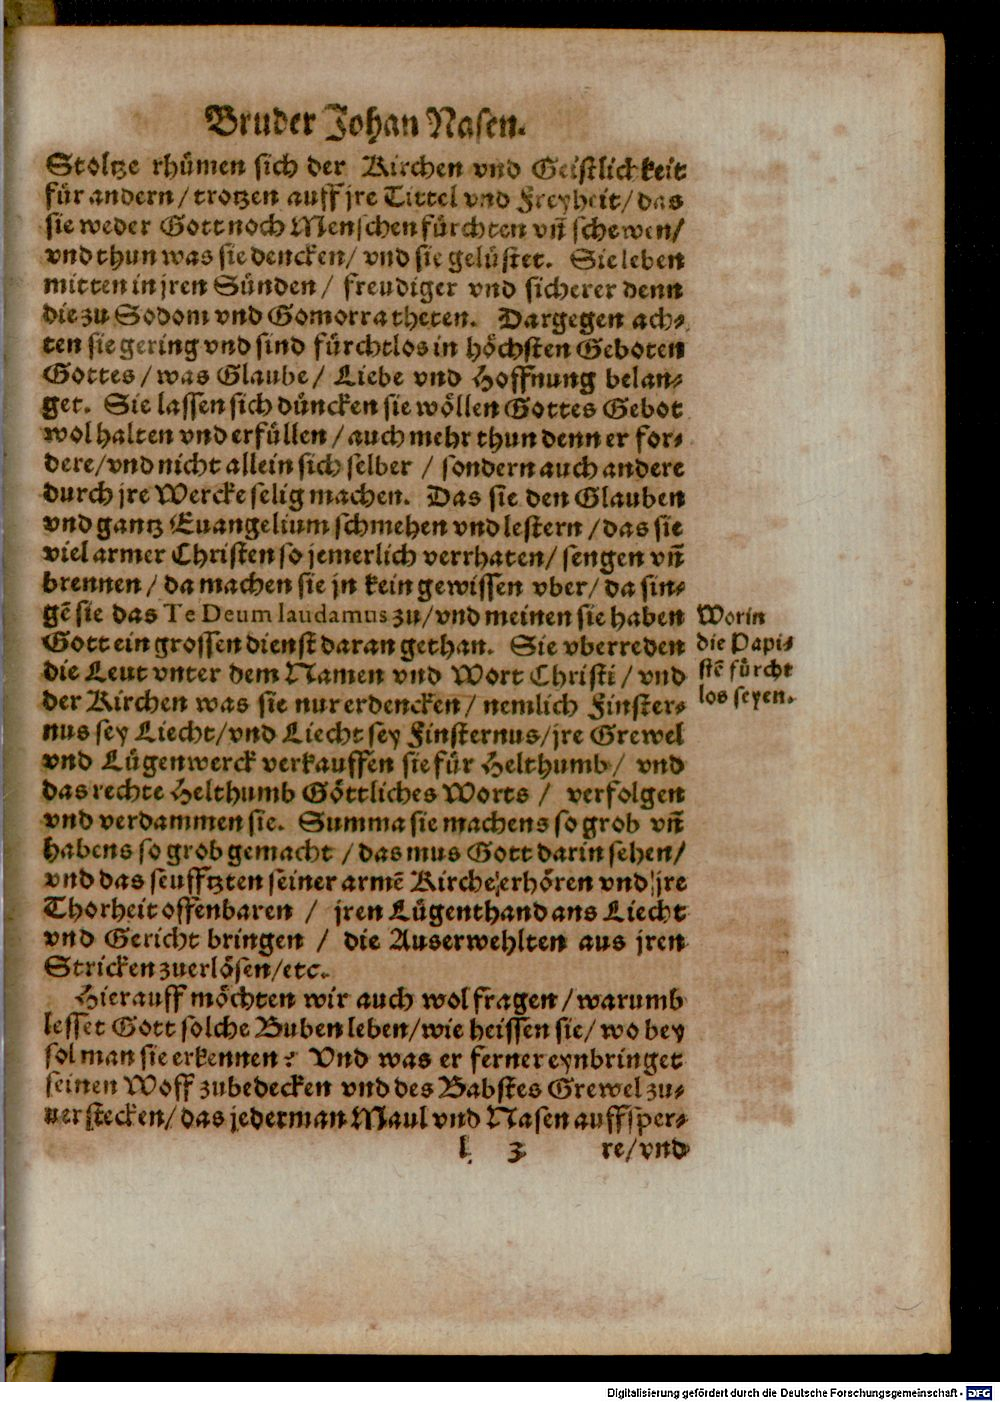 Bruder Johan Nasen.
Stoltze rhümen sich der Kirchen vnd Geistlichkeit
für andern / trotzen auff jre Tittel vnd Freyheit / das
sie weder Gott noch Menschen fürchten vñ schewen /
vnd thun was sie dencken / vnd sie gelüstet. Sie leben
mitten in jren Sünden / freudiger vnd sicherer denn
die zu Sodom vnd Gomorra theten. Dargegen ach⸗
ten sie gering vnd sind fürchtlos in höchsten Geboten
Gottes / was Glaube / Liebe vnd Hoffnung belan⸗
get. Sie lassen sich düncken sie wöllen Gottes Gebot
wol halten vnd erfüllen / auch mehr thun denn er for⸗
dere / vnd nicht allein sich selber / sondern auch andere
durch jre Wercke selig machen. Das sie den Glauben
vnd gantz Euangelium schmehen vnd lestern / das sie
viel armer Christen so jemerlich verrhaten / sengen vñ
brennen / da machen sie jn kein gewissen vber / da sin⸗
gẽ sie das Te Deum laudamus zu / vnd meinen sie haben
Gott ein grossen dienst daran gethan. Sie vberreden
die Leut vnter dem Namen vnd Wort Christi / vnd
der Kirchen was sie nur erdencken / nemlich Finster⸗
nus sey Liecht / vnd Liecht sey Finsternus / jre Grewel
vnd Lügenwerck verkauffen sie für Helthumb / vnd
das rechte Helthumb Göttliches Worts / verfolgen
vnd verdammen sie. Summa sie machens so grob vñ
habens so grob gemacht / das mus Gott darin sehen /
vnd das seufftzten seiner armẽ Kirche erhören vnd jre
Thorheit offenbaren / jren Lügenthand ans Liecht
vnd Gericht bringen / die Auserwehlten aus jren
Stricken zuerlösen / etc.
Worin
die Papi⸗
stẽ fürcht
los seyen.
Hierauff möchten wir auch wol fragen / warumb
lesset Gott solche Buben leben / wie heissen sie / wo bey
sol man sie erkennen? Vnd was er ferner eynbringet
seinen Woff zubedecken vnd des Babstes Grewel zu⸗
uerstecken / das jederman Maul vnd Nasen auffsper⸗
l 3 re / vnd
Digitalisierung gefördert durch die Deutsche Forschungsgemeinschaft - DFG